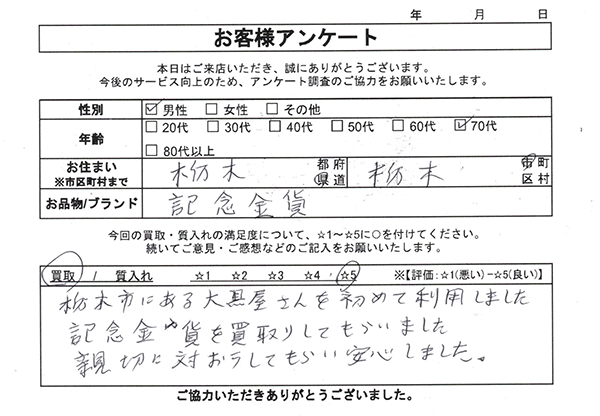 年 月 日
お客様アンケート
本日はご来店いただき、誠にありがとうございます。
今後のサービス向上のため、アンケート調査のご協力をお願いいたします。
性別 ☑男性 □女性 □その他
年齢 □20代 □30代 □40代 □50代 □60代 ☑70代
□80代以上
お住まい 栃木 都府県道 栃木 市町区村
※市区町村まで
お品物/ブランド 記念金貨
今回の買取・質入れの満足度について、☆1〜☆5に○を付けてください。
続いてご意見・ご感想などのご記入をお願いいたします。
買取 / 質入れ ☆1 ☆2 ☆3 ☆4 ☆5 ※【評価:☆1(悪い)−☆5(良い)】
栃木市にある大黒屋さんを初めて利用しました
記念金貨を買取りしてもらいました
親切に対おうしてもらい安心しました。
ご協力いただきありがとうございました。